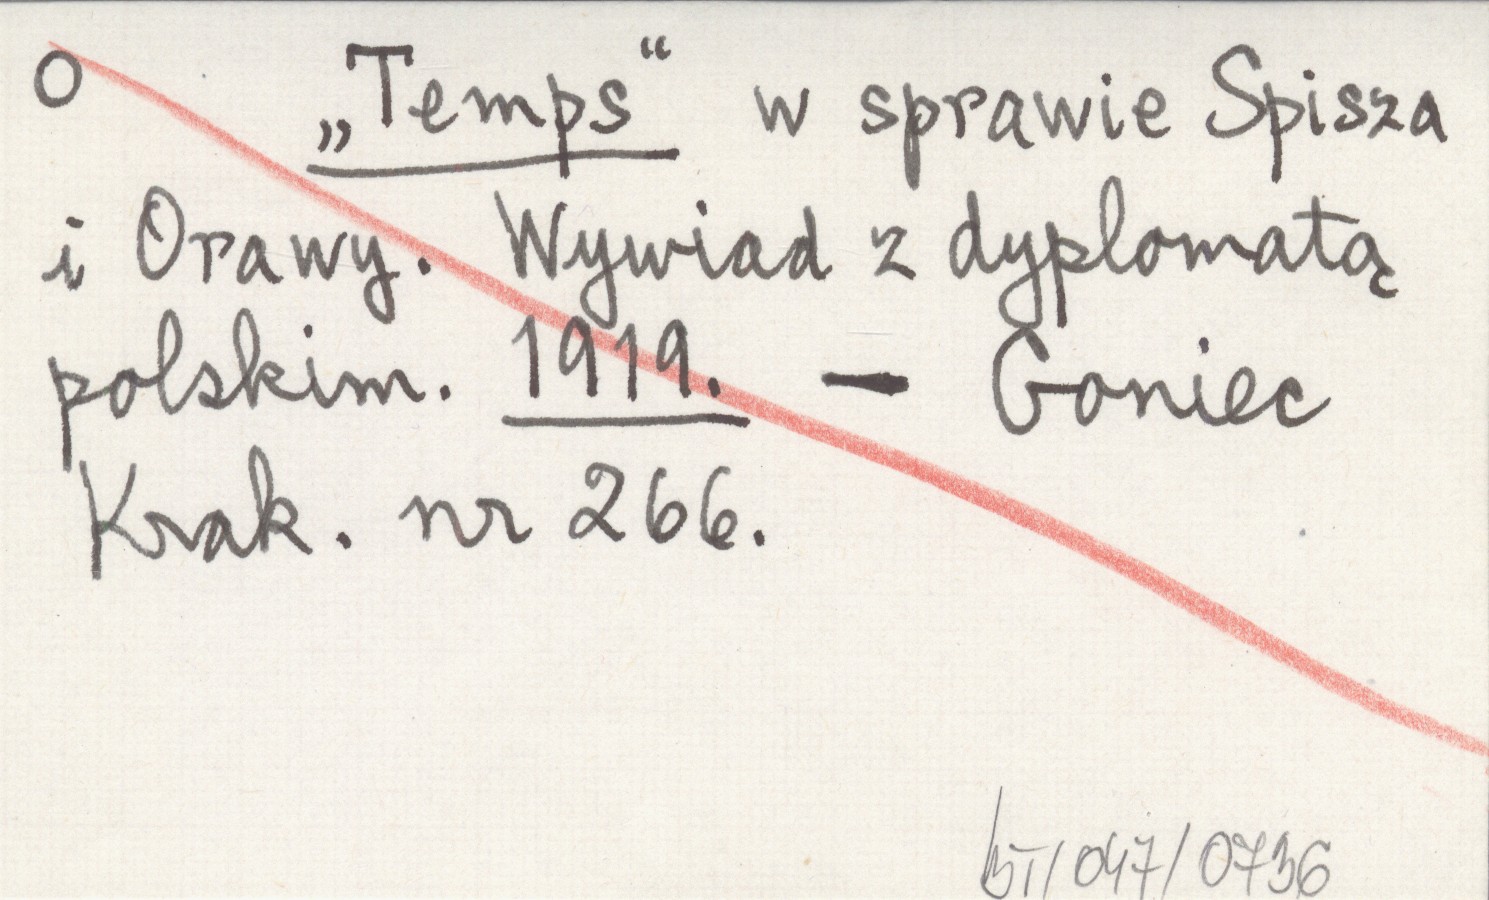 O „Temps“ w sprawie Spisza
i Orawy. Wywiad z dyplomatą
polskim. 1919. — Goniec
Krak. nr 266.
BT/047/0736